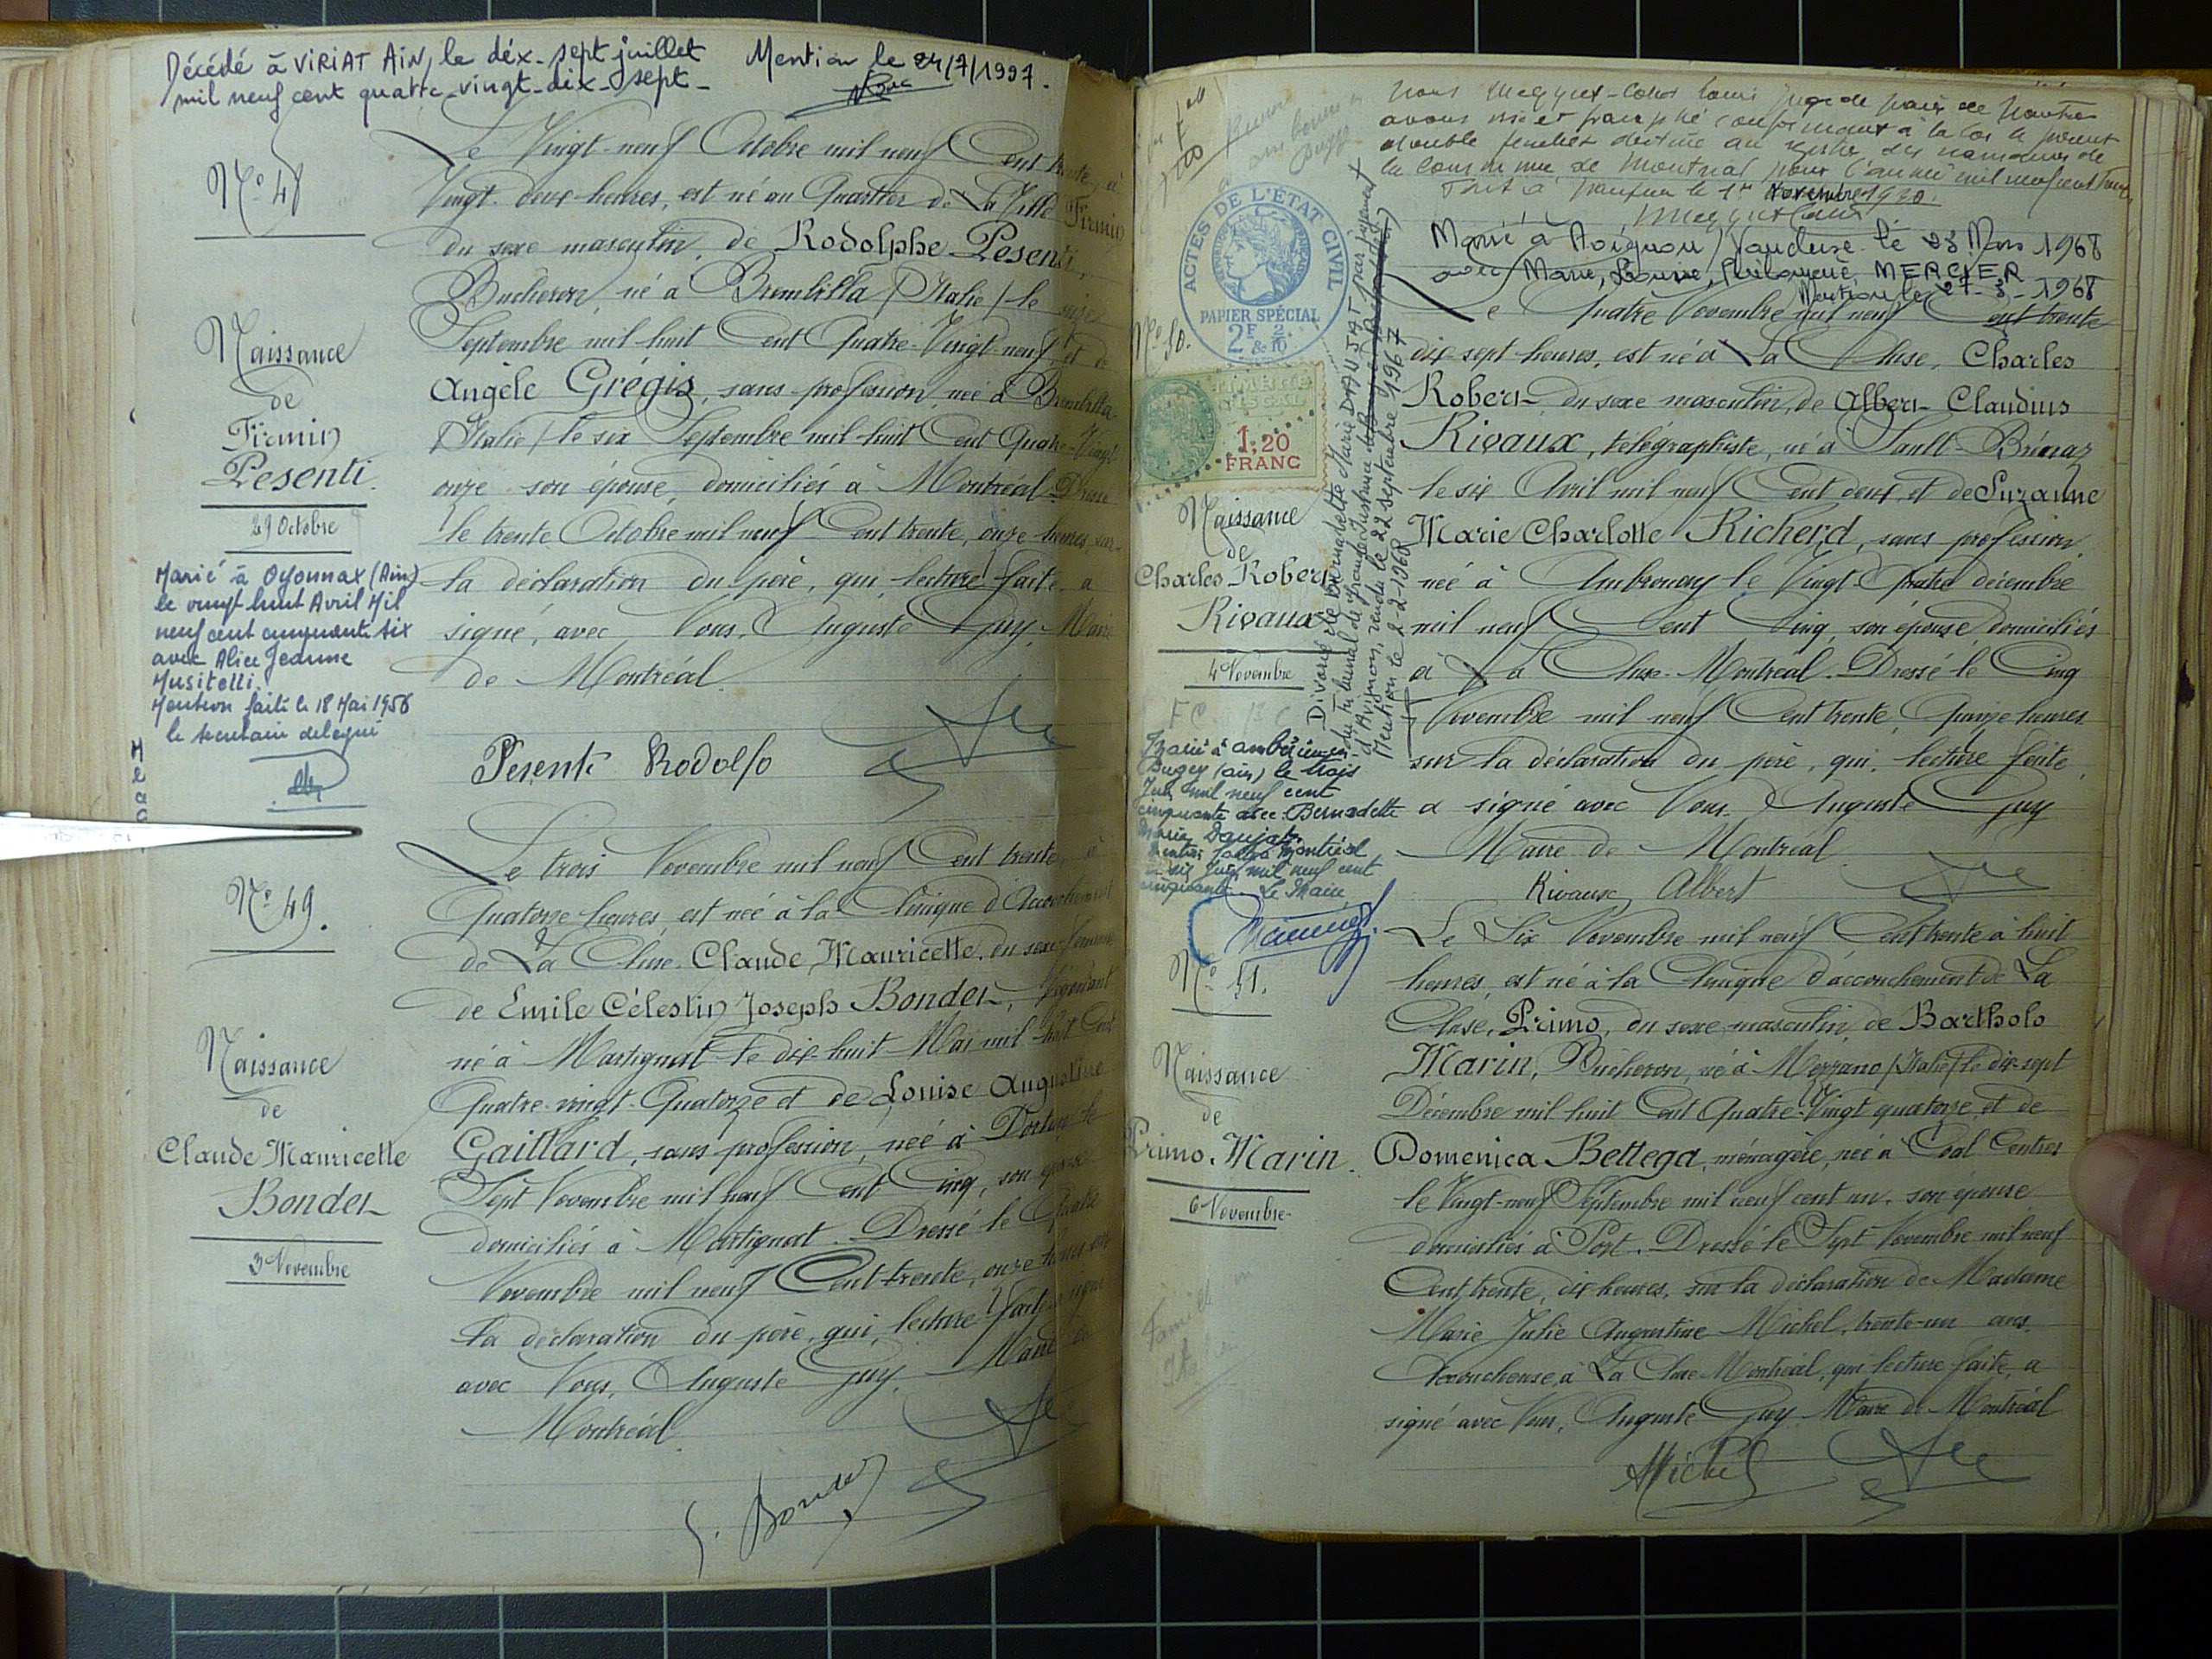 Décédé à VIRIAT AIN, le dix-sept juillet
mil neuf cent quatre-vingt-dix-sept-
Mention le 24/7/1997.
N° 48
Naissance
de
Firmin
Pesenti.
29 Octobre
Marié à Oyonnax (Ain)
le vingt huit Avril Mil
neuf cent cinquante six
avec Alice Jeanne
Musitelli.
Mention faite le 18 Mai 1956
le secrétaire délégué
Le Vingt-neuf Octobre mil neuf Cent trente, à
Vingt-deux heures, est né au Quartier de La Ville Firmin
du sexe masculin, de Rodolphe Pesenti,
Bucheron, né à Brembilla /Italie/ le
Septembre mil huit Cent Quatre-Vingt neuf, et de
Angèle Grégis, sans profession, née à Brembilla
/Italie/ le six Septembre mil huit Cent Quatre-Vingt
onze son épouse, domiciliés à Montréal. Dressé
le trente Octobre mil neuf Cent trente, onze heures, sur
la déclaration du père, qui, lecture faite, a
signé, avec Nous, Auguste Guy, Maire
de Montréal.
Pesenti Rodolfo
N° 49.
Naissance
de
Claude Mauricette
Bonder
3 Novembre
Le trois Novembre mil neuf Cent trente, à
Quatorze heures, est née à la Clinique d'Accouchement
de La Cluse, Claude, Mauricette, du sexe féminin
de Emile Célestin Joseph Bonder,
né à Martignat le dix huit Mai mil huit Cent
Quatre-vingt-Quatorze et de Louise Augustine
Gaillard, sans profession, née à Dortan le
Sept Novembre mil neuf Cent Cinq, son épouse
domiciliés à Martignat. Dressé le Quatre
Novembre mil neuf Cent trente, onze heures sur
la déclaration du père, qui, lecture faite, a signé
avec Nous, Auguste Guy, Maire de
Montréal.
avons
double feuillet destiné au
la commune de Montréal pour l'année mil neuf cent trente
Fait à Nantua le 1er Novembre 1930.
ACTES DE L'ÉTAT CIVIL
PAPIER SPÉCIAL
2F 2/10
N° 50.
1,20
FRANC
Marié à Avignon/Vaucluse le 23 Mars 1968
avec Marie, Louise, Philomène MERCIER
Mention le 27-3-1968
Divorcé de Bernadette Marie DAUJAT par jugement
du tribunal de grande Instance
d'Avignon, rendu le 22 septembre 1967
Mention le 2-2-1968
Naissance
de
Charles Robert
Rivaux
4 Novembre
Marié à Ambérieu-en-
Bugey (Ain) le trois
Juin mil neuf cent
cinquante avec Bernadette
Marie Daujat.
Mention faite à Montréal
le six Juin mil neuf cent
cinquante Le Maire
Le Quatre Novembre mil neuf Cent trente
dix-sept heures, est né à La Cluse, Charles
Robert, du sexe masculin, de Albert Claudius
Rivaux, télégraphiste, né à Sault-Brénaz
le six Avril mil neuf Cent deux, et de Suzanne
Marie Charlotte Richerd, sans profession
née à Ambronay le Vingt-Quatre décembre
mil neuf Cent Cinq, son épouse domiciliés
à La Cluse-Montréal. Dressé le Cinq
Novembre mil neuf Cent trente, Quinze heures
sur la déclaration du père, qui, lecture faite,
a signé avec Nous, Auguste Guy
Maire de Montréal.
Rivaux Albert
N° 51.
Naissance
de
Primo Marin.
6 Novembre
Le Six Novembre mil neuf Cent trente à huit
heures, est né à la Clinique d'accouchement de La
Cluse, Primo, du sexe masculin, de Bartholo
Marin, Bûcheron, né à Mezzano /Italie/ le dix-sept
Décembre mil huit Cent Quatre-Vingt quatorze et de
Domenica Bettega, ménagère, née à Coal Centres
le Vingt-neuf Septembre mil neuf cent un, son épouse
domiciliés à Port. Dressé le Sept Novembre mil neuf
Cent trente, dix heures, sur la déclaration de Madame
Marie Julie Augustine Michel, trente-un ans,
Accoucheuse, à La Cluse-Montréal, qui lecture faite, a
signé avec Nous, Auguste Guy Maire de Montréal
Michel